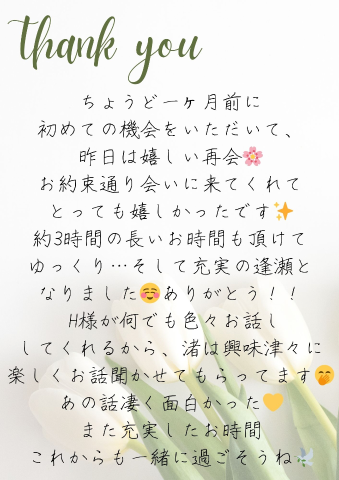 thank you
ちょうど一ヶ月前に
初めての機会をいただいて、
昨日は嬉しい再会🌸
お約束通り会いに来てくれて
とっても嬉しかったです✨
約3時間の長いお時間も頂けて
ゆっくり…そして充実の逢瀬と
なりました☺️ありがとう！！
H様が何でも色々お話し
してくれるから、渚は興味津々に
楽しくお話聞かせてもらってます🤭
あの話凄く面白かった💛
また充実したお時間
これからも一緒に過ごそうね🕊️